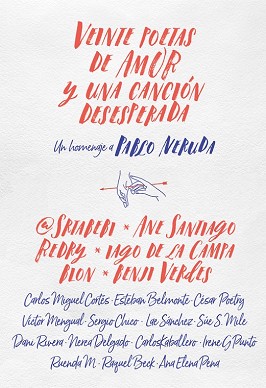 VEINTE POETAS
DE AMOR
Y UNA CANCIÓN
DESESPERADA
Un homenaje a PABLO NERUDA
@SRTABEBI × ANE SANTIAGO
REDRY × IAGO DE LA CAMPA
BENJI VERDES
Carlos Miguel Cortés · Esteban Belmonte · César Poetry
Víctor Mengual · Sergio Chico · Lae Sánchez · Sue S. Mile
Dani Rivera · Nerea Delgado · Carlos Kaballero · Irene G Punto
Ruenda M. · Raquel Beck · Ana Elena Pena